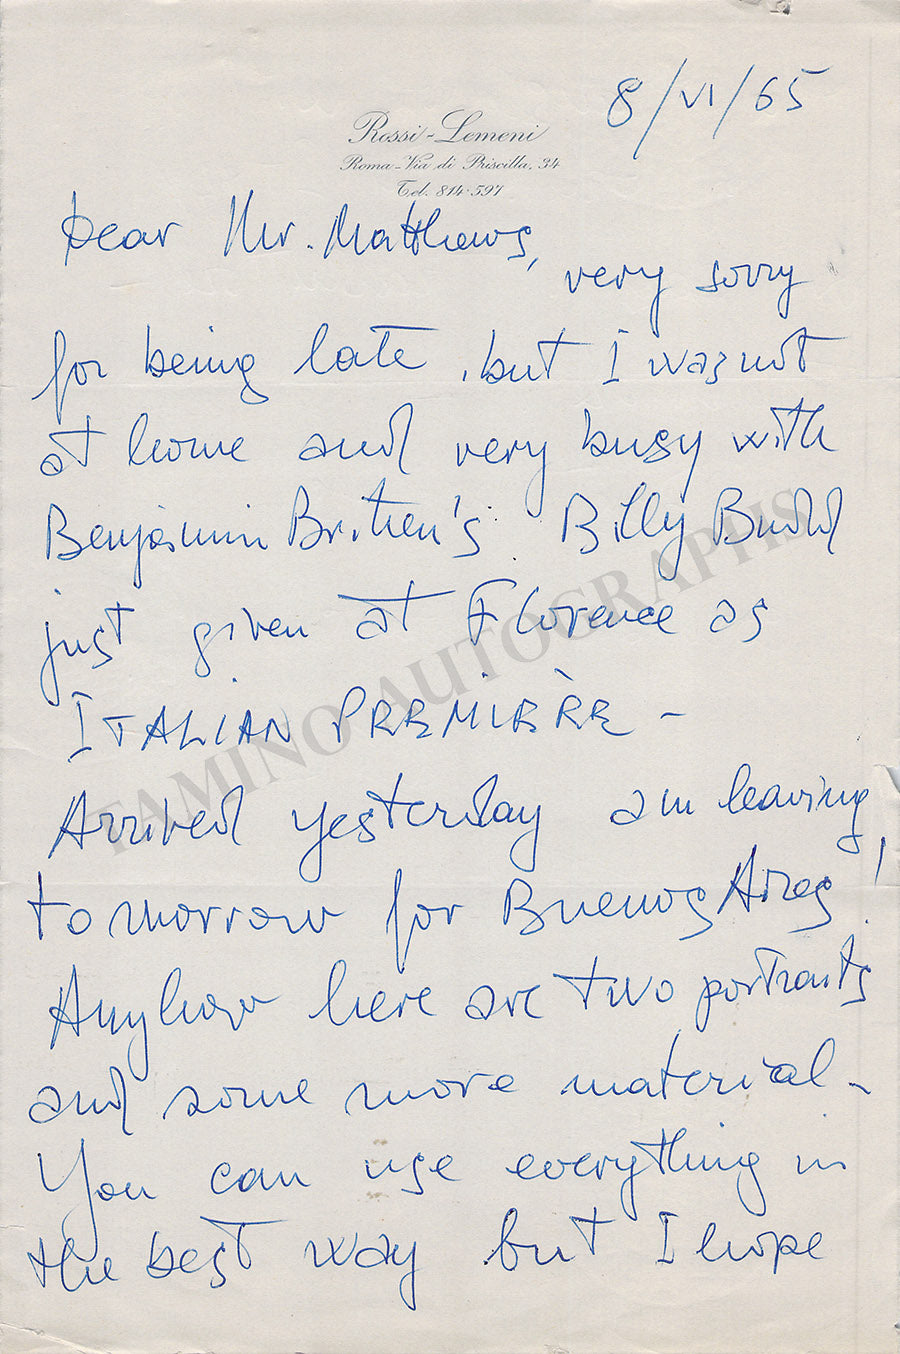 8/VI/65
Rossi-Lemeni
Roma - Via di Priscilla, 34
Tel. 814-597
Dear Mr. Matthews,
very sorry
for being late, but I was not
at home and very busy with
Benjamin Britten's Billy Budd
just given at Florence as
ITALIAN PREMIÈRE -
Arrived yesterday am leaving
tomorrow for Buenos Aires!
Anyhow here are two portraits
and some more material -
You can use everything in
the best way but I hope
TAMINO AUTOGRAPHS